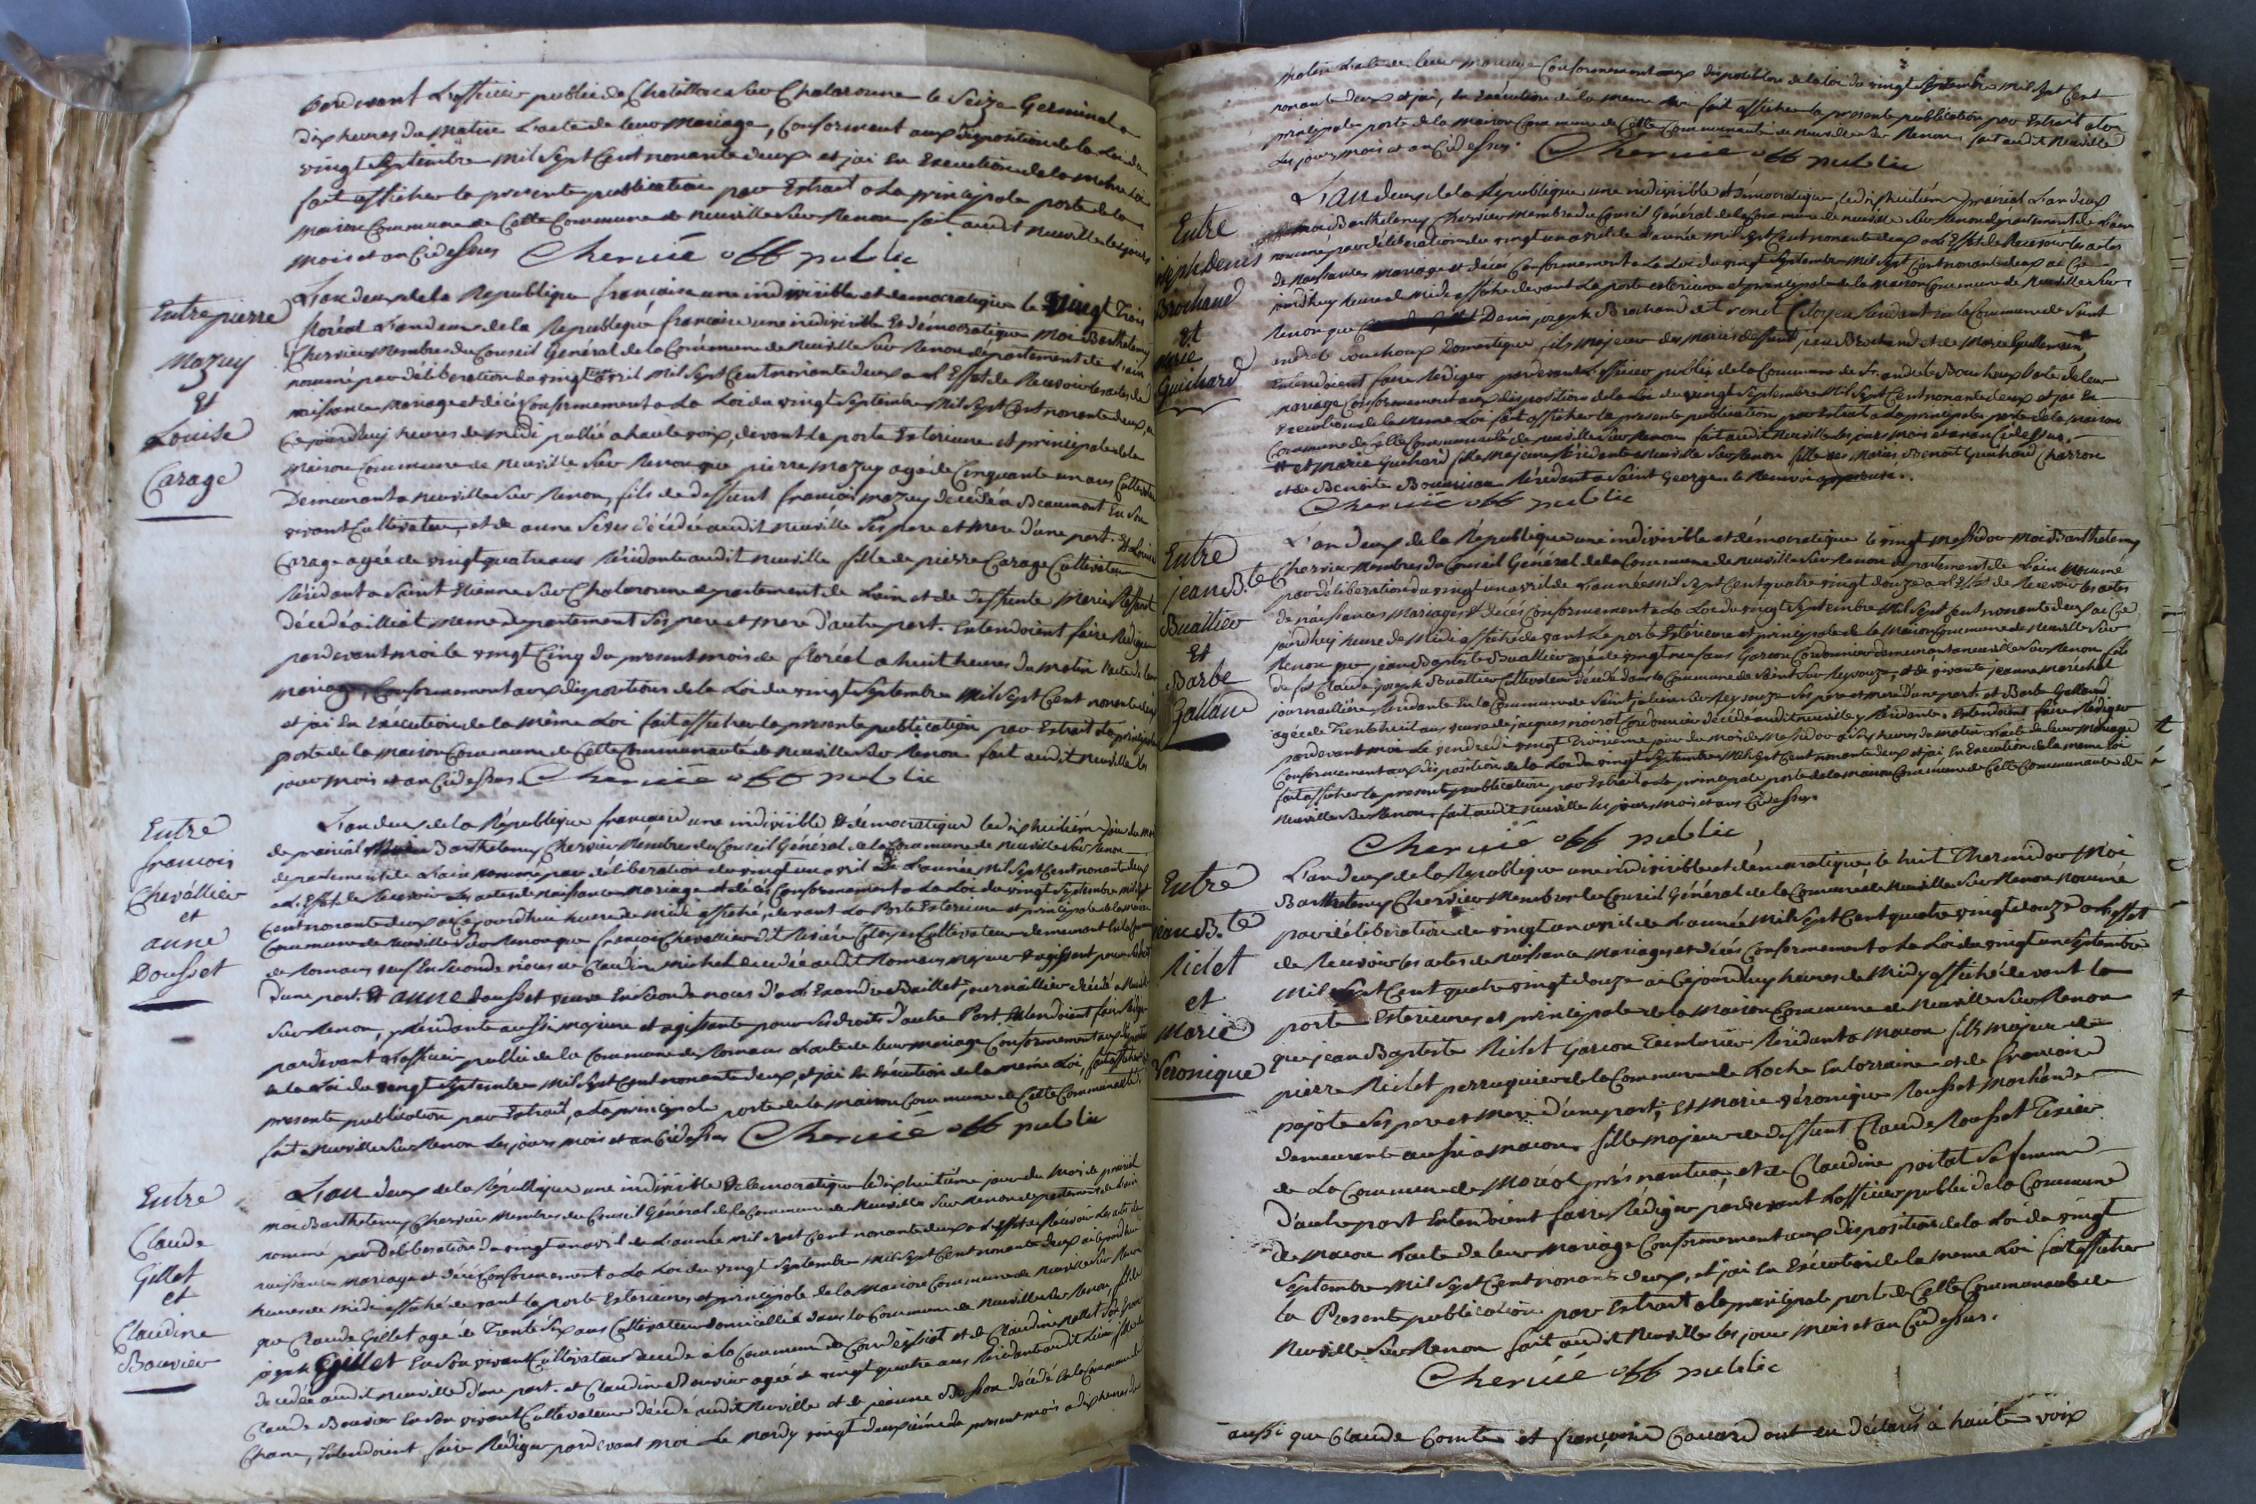 pardevant L'officier public de Chatillon sur Chalaronne le Seize Germinal a
dix heures du Matin L'acte de leur Mariage, Conforment aux disposition de la Loi du
vingt Septembre Mil Sept Cent nonante deux et j'ai En Execution de la meme Loi
fait afficher la presente publication par Extrait a La principale porte de la
maison Commune de Cette Commune de neuville Sur Renon fait audit neuville les jours
mois et an Cidessus Chervié off public
Entre pierre
Mazuy
Et
Louise
Carage
L'an deux de la Republique francaise une indivisible et democratique le vingt Trois
floréal L'an deux de la Republique francaise une indivisible Et démocratique Moi Barthelemy
Chervier Membres du Conseil Général de la Commune de Neuville Sur Renon département de L'ain
nommé par déliberation du vingt un avril Mil Sept Cent nonante deux a L'Effet de Recevoir les actes de
naissance Mariage et décès Conformement a La Loi du vingt Septembre Mil Sept Cent nonante deux, ai
Cejourdhuy heures de midi publié a haute voix, devant La porte Exterieure et principale de la
Maison Commune de Neuville Sur Renon que pierre Mazuy agé de Cinquante un ans Cultivateur
Demeurant a Neuville Sur Renon, fils de deffunt francois mazuy décédé a Beaumont En Son
vivant Cultivateur, et de anne décédée audit neuville Ses pere et mere d'une part. Et Louise
Carage agée de vingt quatre ans Résidante audit neuville fille de pierre Carage Cultivateur
Résidant a Saint Etienne Sur Chalaronne departement de Lain et de deffunte Marie
décédée a illiat meme departement Ses pere et mere d'autre part. Entendoient faire Rédiger
pardevant moi le vingt Cinq du present mois de floréal a huit heures du Matin L'acte de leur
mariage, Conformement aux dispositions de la Loi du vingt Septembre Mil Sept Cent nonante deux
et j'ai En Exécution de la Même Loi fait afficher la presente publication par Extrait La principale
porte de la Maison Commune de Cette Communauté de Neuville Sur Renon fait audit Neuville les
jour mois et an Cidessus Chervié off public
Entre
francois
Chevallier
et
anne
Dousset
L'an deux de la République francaise une indivisible Et démocratique le dixhuitiém jour du mois
de prairial Barthelemy Chervier Membres du Conseil Général de la Commune de Neuville Sur Renon
departement de L'ain nommé par déliberation du vingt un avril de L'année Mil Sept Cent nonante deux
a L'Effet de Recevoir Les actes de Naissance Mariage et décés Conformement a La Loi du vingt Septembre Mil Sept
Cent nonante deux ai Cejourdhui heure de Midi affiché, devant La Porte Exterieure et principale de la maison
Commune de Neuville Sur Renon que francois Chevallier dit Citoyen Cultivateur demeurant En la Commune
de Romans veuf En Seconde nôces de Claudine Michel decedée audit Romans majeur et agissant pour Ses droits
d'une part. Et anne Dousset veuve En Seconde noces d'a L'Exandre Baillet journaillier décédé a Neuville
Sur Renon, y Résidante aussi majeure et agissante pour Ses droits d'autre Part Entendoient faire Rédiger
pardevant L'officier public de la Commune de Romans L'acte de leur mariage Conformement aux dispositions
de la Loi du vingt Septembre Mil Sept Cent nonante deux, et j'ai En Exécution de la même Loi, fait afficher la
presente publication par Extrait, a La principale porte de la Maison Commune de Cette Communauté.
fait a Neuville Sur Renon Les jours mois et an Cidessus Chervié off public
Entre
Claude
Gillet
et
Claudine
Bouvier
L'an deux de la République une indivisible Et democratique le dixhuitiéme jour du Mois de prairial
Moi Barthelemy Chervier Membres du Conseil Général de la Commune de Neuville Sur Renon departement de Lain
nommé par Deliberation du vingt un avril de L'année Mil Sept Cent nonante deux a L'Effet de Recevoir Les actes de
naissance Mariage et décés Conformement a La Loi du vingt Septembre Mil Sept Cent nonante deux ai Cejourdhui
heures de Midi affiché devant la porte Exterieures et principale de la Maison Commune de Neuville Sur Renon
que Claude Gillet agé de Trente Six ans Cultivateur domicilié dans la Commune de Neuville Sur Renon, fils de
joseph Gillet En Son vivant Cultivateur decedé a la Commune de Condeissiat et de Claudine Son Epouse
decedée audit neuville d'une part. et Claudine Bouvier agée de vingt quatre ans Residante audit Lieu fille de
Claude Bouvier En Son vivant Cultivateur décédé audit Neuville et de jeanne Besson décédée En la Commune de
Chane, Entendoient faire Rédiger pardevant moi Le Mardy vingt deuxiéme du present mois a dix heures du
matin L'acte de leur mariage Conformement aux disposition de la Loi du vingt Septembre Mil Sept Cent
nonante deux et j'ai, En Exécution de la meme Loi fait afficher la presente publication par Extrait a La
principale porte de la Maison Commune de Cette Communauté de Neuville Sur Renon fait audit Neuville
Les jours mois et an Cidessus. Chervié off public
Entre
joseph Denis
Brochand
Et
Marie
Guichard
L'an deux de la République une indivisible Et Démocratique le dixhuitiém prairial L'an deux
moi Barthelemy Chervier Membre du Conseil Général de la Commune de Neuville Sur Renon departement de L'ain
nommé par déliberation du vingt un avril de L'année Mil Sept Cent nonante deux a L'Effet de Recevoir les actes
de Naissances Mariage et décés Conformement a La Loi du vingt Septembre Mil Sept Cent nonante deux ai Ce
jourdhuy heure de Midi affiché devant La porte Exterieure et principale de la Maison Commune de Neuville Sur
Renon que Denis joseph Brochand dit Citoyen Résidant En la Commune de Saint
andré le Bouchoux Domestique fils majeur des mariés deffunt Brochand et de Marie
Entendoient faire Rédiger pardevant L'officier public de la Commune de St. andré le Bouchoux L'acte de leur
mariage Conformement aux dispositions de la Loi du vingt Septembre Mil Sept Cent nonante deux et j'ai En
Execution de la meme Loi fait afficher la presente publication par Extrait a La principale porte de la Maison
Commune de Cette Communauté de Neuville Sur Renon fait audit Neuville les jour mois et an Cidessus.
# et Marie Guichard fille Majeure Résidente a Neuville Sur Renon fille des Mariés Benoit Guichard Charron
et de Benoite Résidant a Saint George le Renvoi approuvé.
Chervié off public
Entre
jean B.te
Buattier
Et
Barbe
Galland
L'an deux de la République une indivisible et démocratique le vingt Messidor Moi Barthelemy
Chervier Membres du Conseil Général de la Commune de Neuville Sur Renon departement de Lain Nommé
par déliberation du vingt un avril de L'année Mil Sept Cent quatre vingt Douze a L'Effet de Recevoir les actes
de naissances Mariages Et décés Conformement a La Loi du vingt Septembre Mil Sept Cent nonante deux ai Ce
jourdhuy heure de Midi affiché devant La porte Exterieure et principale de la Maison Commune de Neuville Sur
Renon que jean Baptiste Buattier agé de vingt neuf ans Garcon Cordonnier demeurant a neuville Sur Renon fils
de fut Claude joseph Buattier Cultivateur décédé dans la Commune de Saint Sur Reyssouze, et de vivante jeanne Maréchal
journaillière Résidante En la Commune de Saint julien Sur Reyssouze Ses pere et mere d'une part. et Barbe Galland
agée de Trente huit ans veuve de jacques Cordonnier décédé audit neuville y Résidante. Entendoient faire Rédiger
pardevant moi Le vendredi vingt Troisieme jour du mois de Messidor a heures du Matin L'acte de leur Mariage
Conformement aux disposition de la Loi du vingt Septembre Mil Sept Cent nonante deux et j'ai En Execution de la meme Loi
fait afficher la presente publication par Extrait a La principale porte de la maison Commune de Cette Communauté de
Neuville Sur Renon, fait audit Neuville les jours Mois et ans Cidessus.
Chervié off public
Entre
jean B.te
Riclet
et
Marie
Véronique
L'an deux de la Republique une indivisible et démocratique le huit Thermidor Moi
Barthelemy Chervier Membre du Conseil Général de la Commune de Neuville Sur Renon Nommé
par déliberation du vingt un avril de L'année Mil Sept Cent quatre vingt douze a L'effet
de Recevoir les actes de Naissance Mariages et décés Conformement a La Loi du vingt un Septembre
Mil Sept Cent quatre vingt Douze ai Cejourdhuy heures de Midy affiché devant La
porte Exterieures et principale de la Maison Commune de Neuville Sur Renon
que jean Baptiste Riclet Garcon Teinturier Résidant a Macon fils majeur de
pierre Riclet perruquier de la Commune de Loche En lorraine et de francoise
pajote Ses pere et mere d'une part; Et Marie Véronique Rousset Marchande
demeurante aussi a macon, fille majeure de deffunt Claude Rousset Tixier
de La Commune de près nantua, et de Claudine poitat Sa femme
d'autre part Entendoient faire Rédiger pardevant L'officier public de la Commune
de Macon L'acte de leur Mariage Conformement aux disposition de la Loi du vingt
Septembre Mil Sept Cent nonante deux, et j'ai En Exécution de la meme Loi fait afficher
la Presente publication par Extrait a la principale porte de Cette Communauté de
Neuville Sur Renon fait audit Neuville les jour Mois et an Cidessus.
Chervié off public
aussi que Claude Comte et françoise Couard ont eu déclaré à haute voix